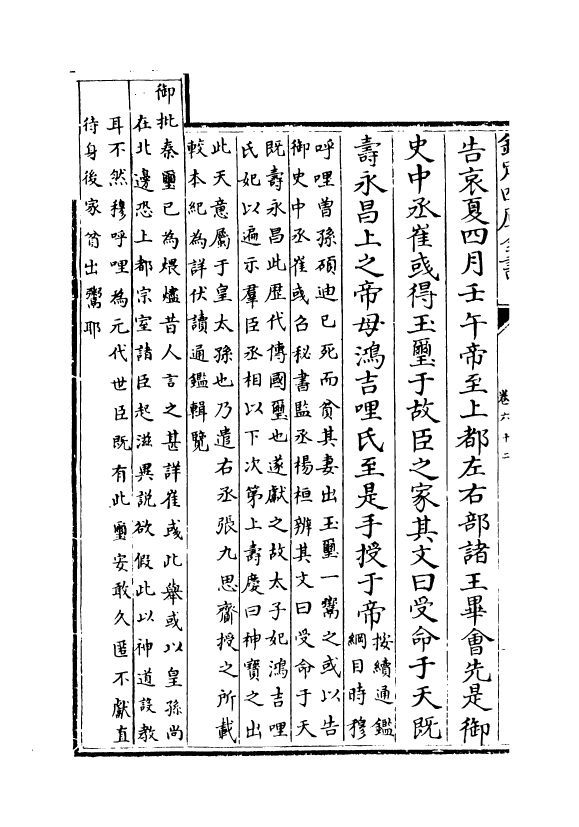 欽定四庫全書
卷六十二
告哀夏四月壬午帝至上都左右部諸王畢會先是御
史中丞崔彧得玉璽于故臣之家其文曰受命于天既
壽永昌上之帝母鴻吉哩氏至是手授于帝
按續通鑑
綱目時穆
呼哩曾孫碩迪已死而貧其妻出玉璽一鬻之或以告
御史中丞崔彧召秘書監丞楊桓辨其文曰受命于天
既壽永昌此歴代傳國璽也遂獻之故太子妃鴻吉哩
氏妃以遍示羣臣丞相以下次第上壽慶曰神寶之出
此天意屬于皇太孫也乃遣右丞張九思齎授之所載
較本紀為詳伏讀通鑑輯覽
御批秦璽已為煨燼昔人言之甚詳崔彧此舉或以皇孫尚
在北邊恐上都宗室諸臣起滋異說欲假此以神道設教
耳不然穆呼哩為元代世臣既有此璽安敢久匿不獻直
待身後家貧出鬻耶